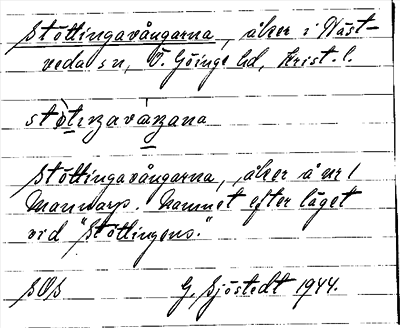 Stöttingavångarna, åker i Näst-
veda sn, Ö. Göinge hd, Krist. l.
støtiŋavåŋana
Stöttingavångarna, åker å nr 1
Mannarp. Namnet efter läget
vid "Stöttingens."
SOS G. Sjöstedt 1944.